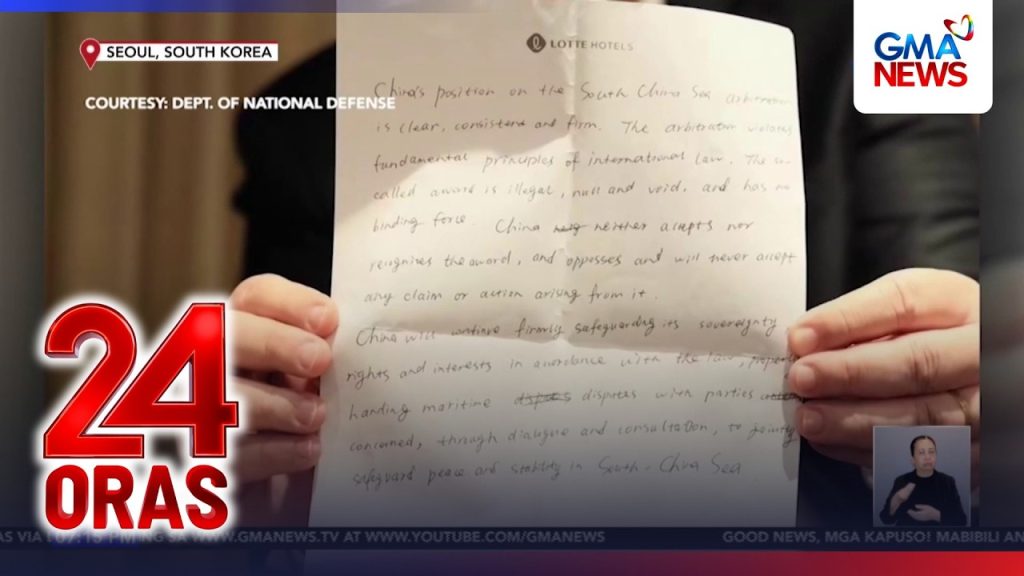 SEOUL, SOUTH KOREA
COURTESY: DEPT. OF NATIONAL DEFENSE
GMA
NEWS
LOTTE HOTELS
China's position on the South China Sea arbitration
is clear, consistent and firm. The arbitration violates
fundamental principles of international law. The so-
called award is illegal, null and void, and has no
binding force. China neither accepts nor
recognizes the award, and opposses and will never accept
any claim or action arising from it.
China will continue firmly safeguarding its sovereignty
rights and interests in accordance with the law, properly
handing maritime disputes with parties
concerned, through dialogue and consultation, to jointly
safeguard peace and stability in South China Sea.
24
ORAS
SA WWW.GMANEWS.TV AT WWW.YOUTUBE.COM/GMANEWS
GOOD NEWS, MGA KAPUSO! MABIBILI AN